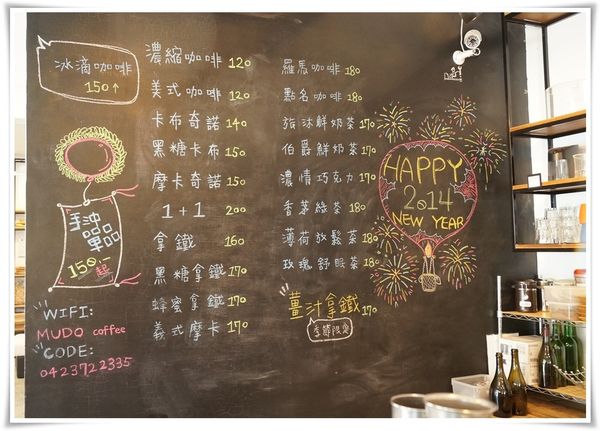 冰滴咖啡
150↑
手沖
單品
150.-起
WIFI:
MUDO coffee
CODE:
0423722335
濃縮咖啡 120
美式咖啡 120
卡布奇諾 140
黑糖卡布 150
摩卡奇諾 150
1+1 200
拿鐵 160
黑糖拿鐵 170
蜂蜜拿鐵 170
義式摩卡 170
羅馬咖啡 180
點名咖啡 180
旅沐鮮奶茶 170
伯爵鮮奶茶 170
濃情巧克力 170
香茅綠茶 180
薄荷放鬆茶 180
玫瑰舒眠茶 180
薑汁拿鐵 170
季節限定
HAPPY
2014
NEW YEAR